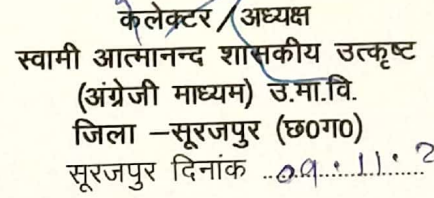 कलेक्टर/अध्यक्ष
स्वामी आत्मानन्द शासकीय उत्कृष्ट
(अंग्रेजी माध्यम) उ.मा.वि.
जिला –सूरजपुर (छ0ग0)
सूरजपुर दिनांक ..09.11.2